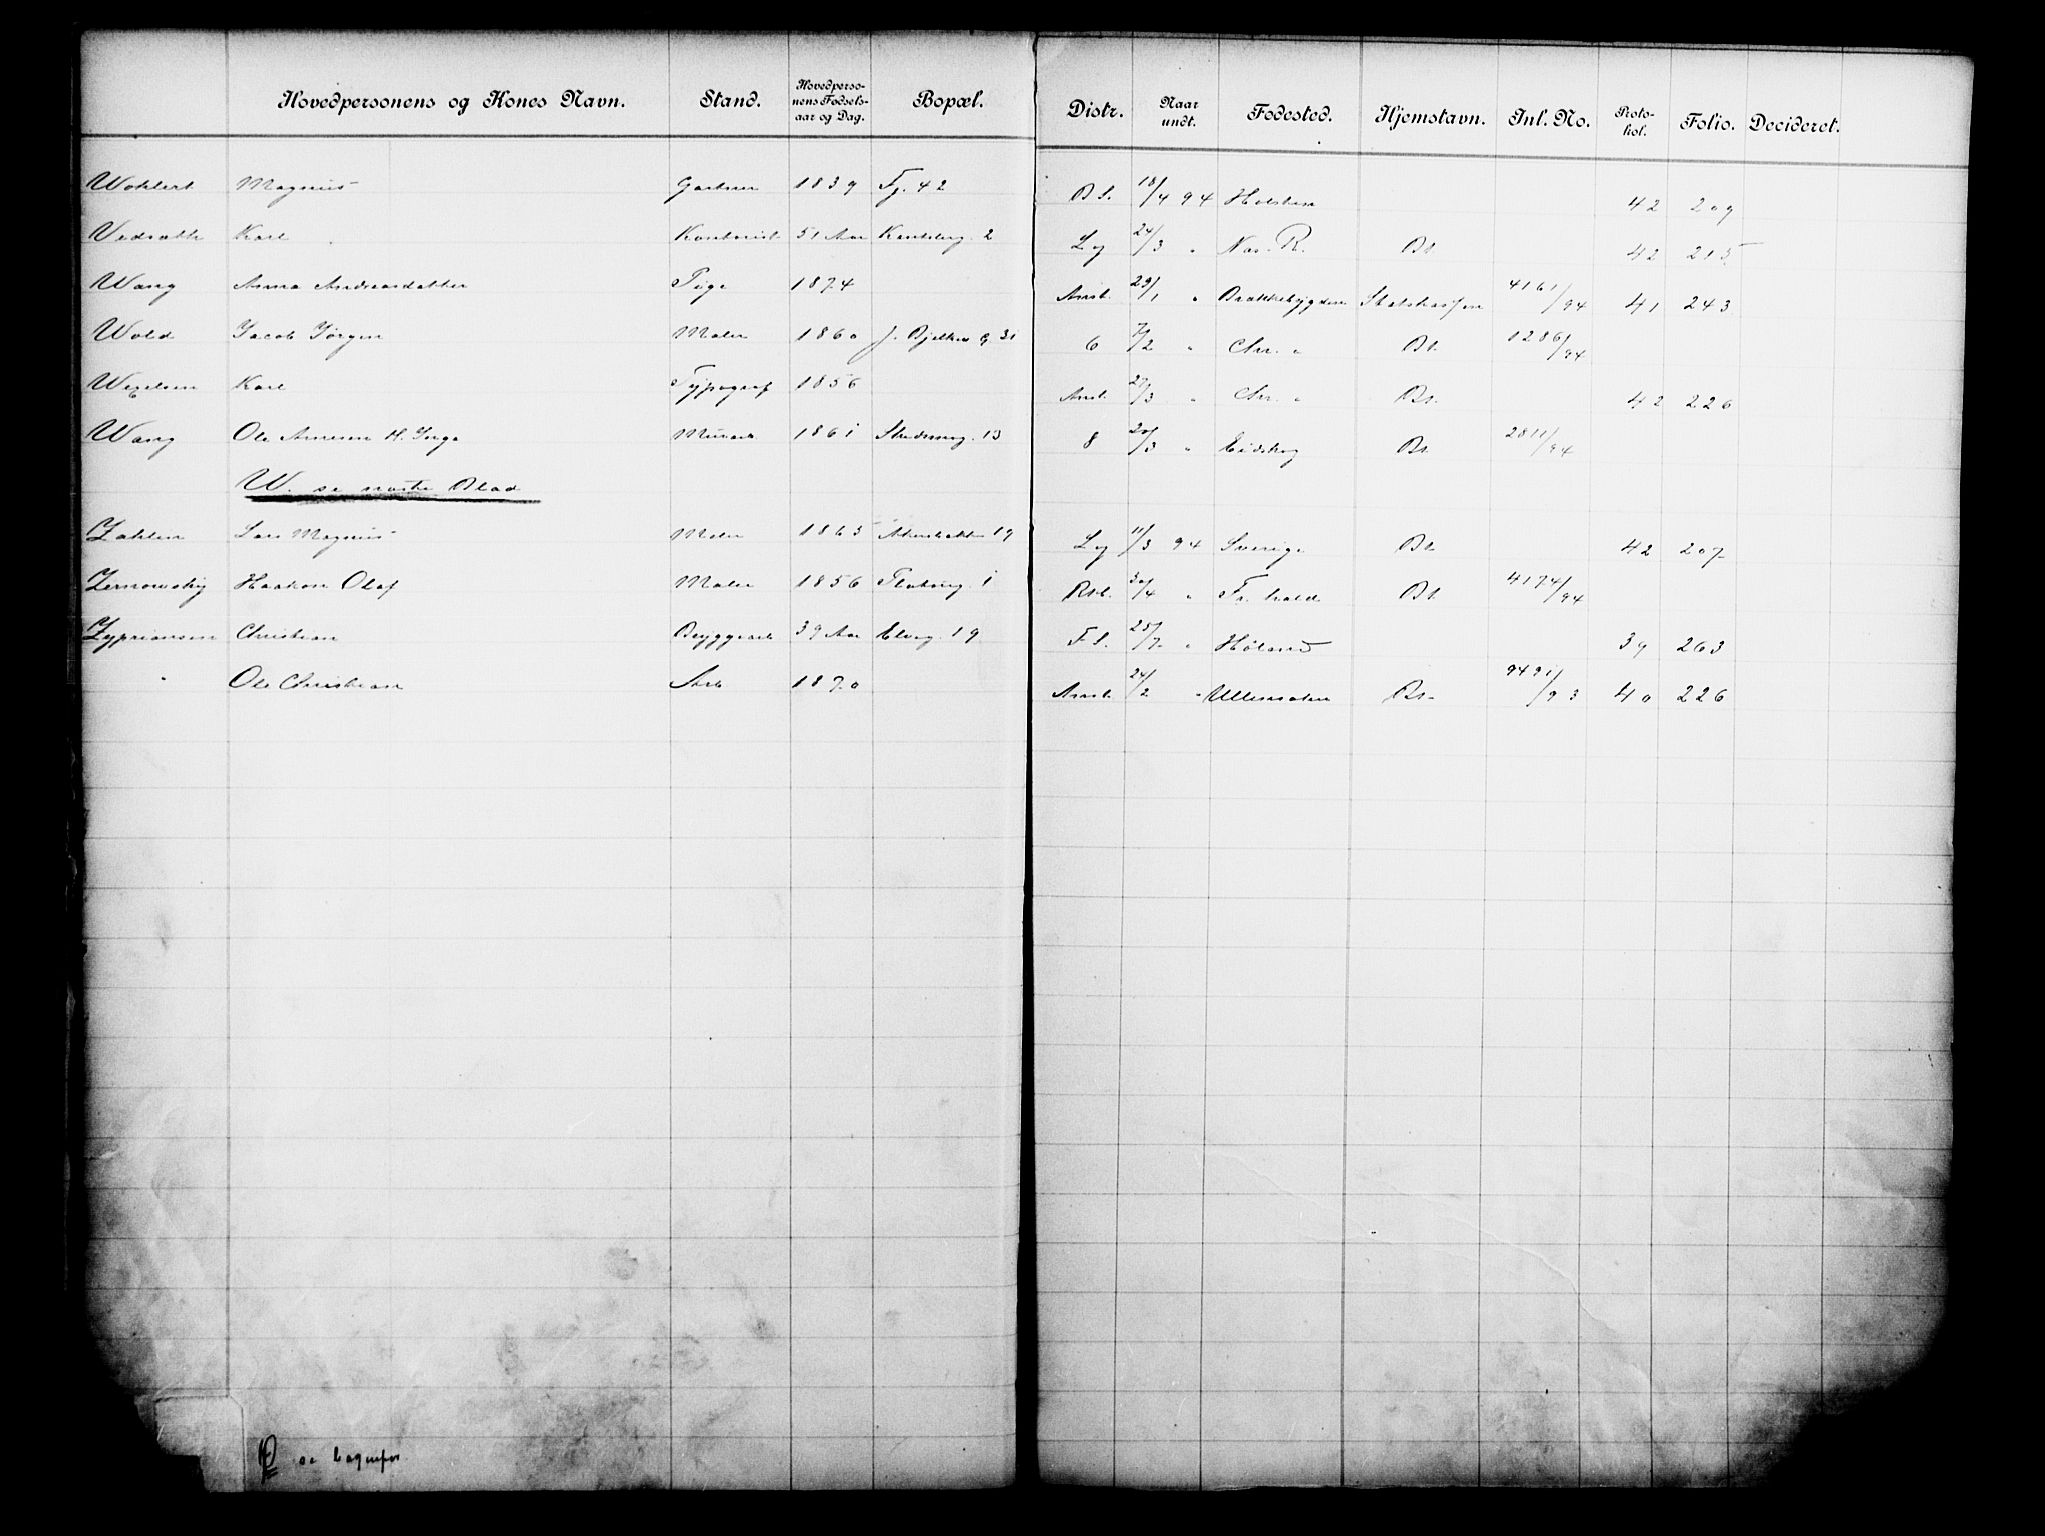 Hovedpersonens og Kones Navn. Stand. Hovedpersonens Fødselsaar og Dag. Bopæl. Distr. Naar undt. Fødested. Hjemstavn. Inl. No. Protokol. Folio. Decideret.
Wohlert Magnus Gartner 1839 Fj. 42 Bl. 18/4 94 Holsten 42 209
Vedsath Karl Kontorist 51 Aar 2 Lg 24/3 " Nor. R. Bt. 42 215
Wang Anna Andreasdatter Pige 1874 Amb. 29/1 " 4161/94 41 243
Wold Jacob Jørgen Maler 1860 J. Bjelkes g 31 6 7/2 " Chr. " Bt. 1286/94
Karl Typograf 1856 Amb. 27/3 " Chr. " Bt. 42 226
Wang Ole Arnesen H. Inga Murarb 1861 13 8 20/3 " Eidskog Bt. 2811/94
W. se næste Blad
Zahlin Lars Magnus Maler 1863 19 Lg 11/3 94 Sverige Bt. 42 207
Zernowsky Haakon Olaf Maler 1856 1 30/4 " Fr. hald Bt. 4174/94
Zypriansen Christian Bryggearb 39 Aar Elveg. 19 Fl. 25/7 " Høland 39 263
" Ole Christian Arb 1870 Amb. 24/2 " Ullensaker Bt. 9491/93 40 226
se bagenfor